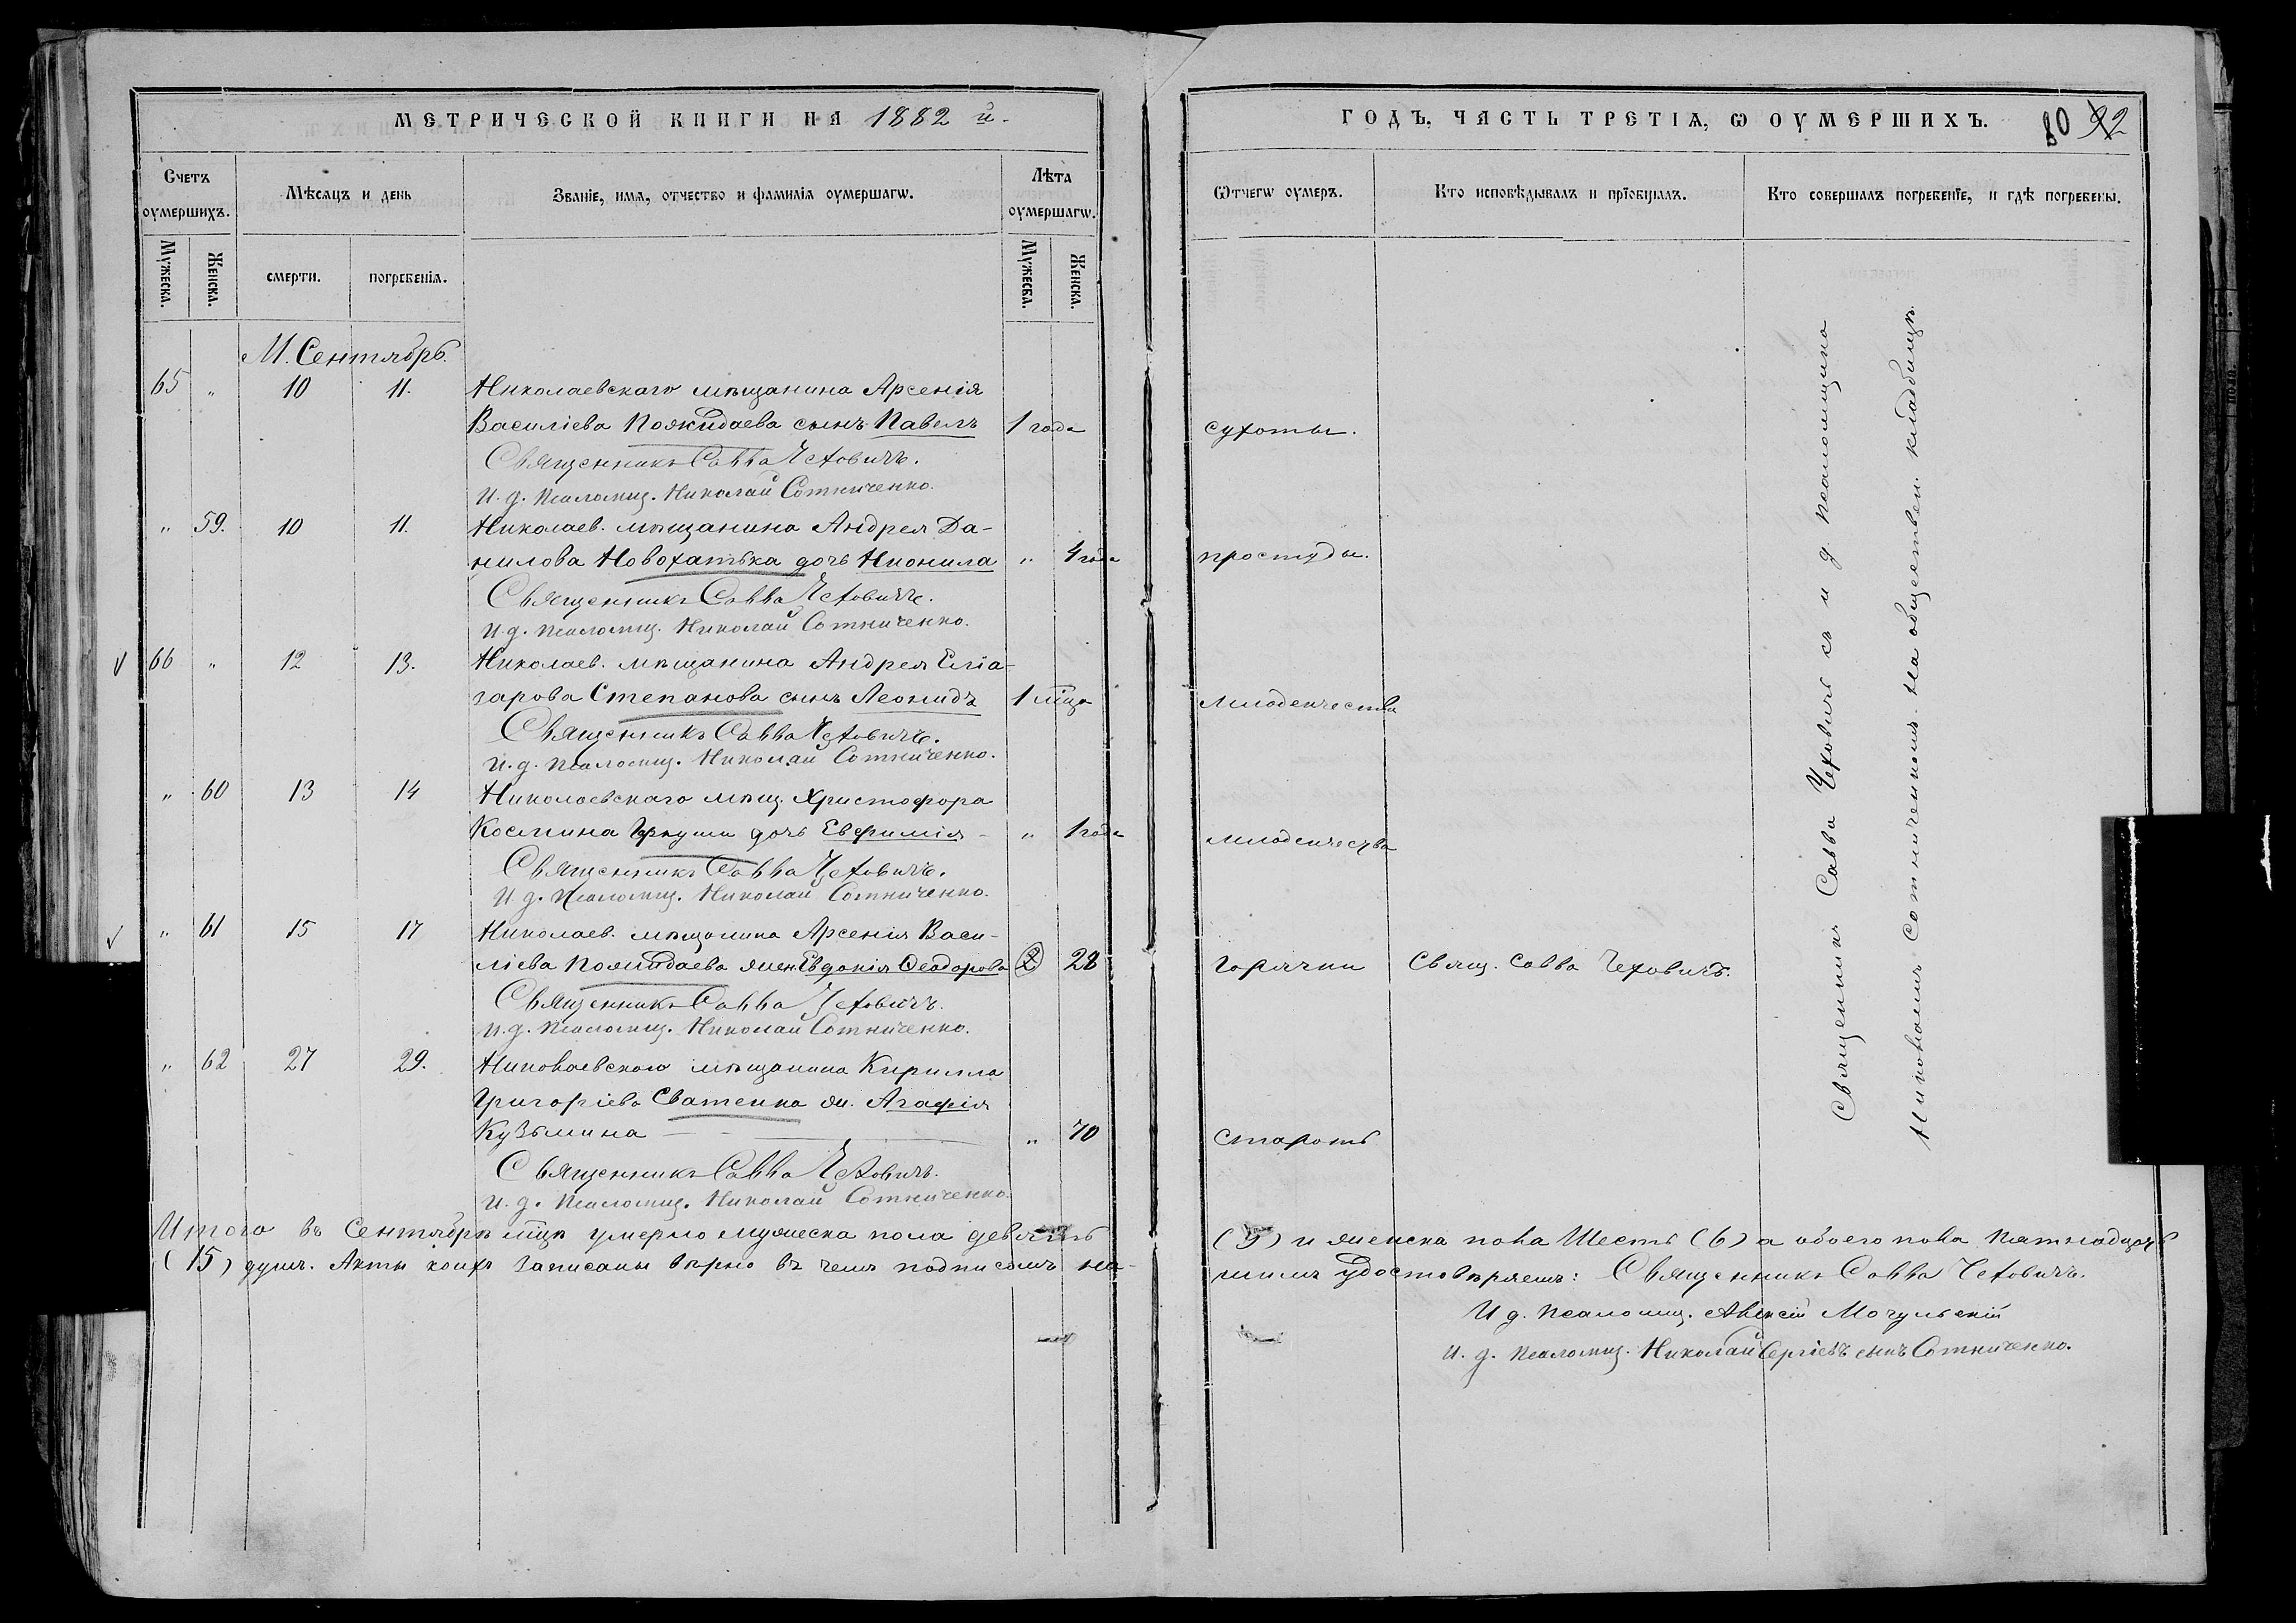 МЕТРИЧЕСКОЙ КНИГИ НА 1882 й.
Счетъ оумершихъ.
Мѣсяцъ и день
Званіе, имя, отчество и фамилія оумершагѡ.
Лѣта оумершагѡ.
Мужеска.
Женска.
смерти.
погребенія.
Мужеска.
Женска.
М. Сентябрь.
65 " 10 11. Николаевскаго мѣщанина Арсенія
Василіева Пожидаева сынъ Павелъ 1 года
Священникъ Савва Чеховичъ.
И. д. Псаломщ. Николай Сотниченко.
" 59. 10 11. Николаев. мѣщанина Андрея Да-
нилова Новохатька дочь Нионила " 4 года
Священникъ Савва Чеховичъ.
И. д. Псаломщ. Николай Сотниченко.
√ 66 " 12 13. Николаев. мѣщанина Андрея Еліа-
зарова Степанова сынъ Леонидъ 1 мца
Священникъ Савва Чеховичъ.
И. д. Псаломщ. Николай Сотниченко.
" 60 13 14 Николаевскаго мѣщ. Христофора
Космина дочь Евфимія - " 1 года
Священникъ Савва Чеховичъ.
И. д. Псаломщ. Николай Сотниченко.
√ " 61 15 17 Николаев. мѣщанина Арсенія Васи-
ліева Пожидаева жен. Евдокія Феодорова 28
Священникъ Савва Чеховичъ.
И. д. Псаломщ. Николай Сотниченко.
" 62 27 29. Николаевскаго мѣщанина Кирилла
Григоріева Сватенка ж. Агафія
Кузьмина " 70
Священникъ Савва Чеховичъ.
И. д. Псаломщ. Николай Сотниченко.
Итого въ Сентябрѣ мцѣ умерло мужеска пола девять
(15) душъ. Акты коихъ записаны вѣрно въ чемъ подписомъ на-
ГОДЪ, ЧАСТЬ ТРЕТІЯ, Ѡ ОУМЕРШИХЪ. 80 92
Ѿтчегѡ оумеръ.
Кто исповѣдывалъ и пріобщалъ.
Кто совершалъ погребеніе, и гдѣ погребены.
сухоты.
простуды.
младенчества
младенчества
горячки Свящ. Савва Чеховичъ.
старость
Священникъ Савва Чеховичъ съ и д. псаломщика
Николаемъ Сотниченкомъ на обществен. кладбищѣ.
(9) и женска пола Шесть (6) а обоего пола Пятнадцать
шимъ удостовѣряемъ: Священникъ Савва Чеховичъ.
И д. Псаломщ. Алексій Мочульскій
И. д. Псаломщ. Николай Сергіевъ сынъ Сотниченко.